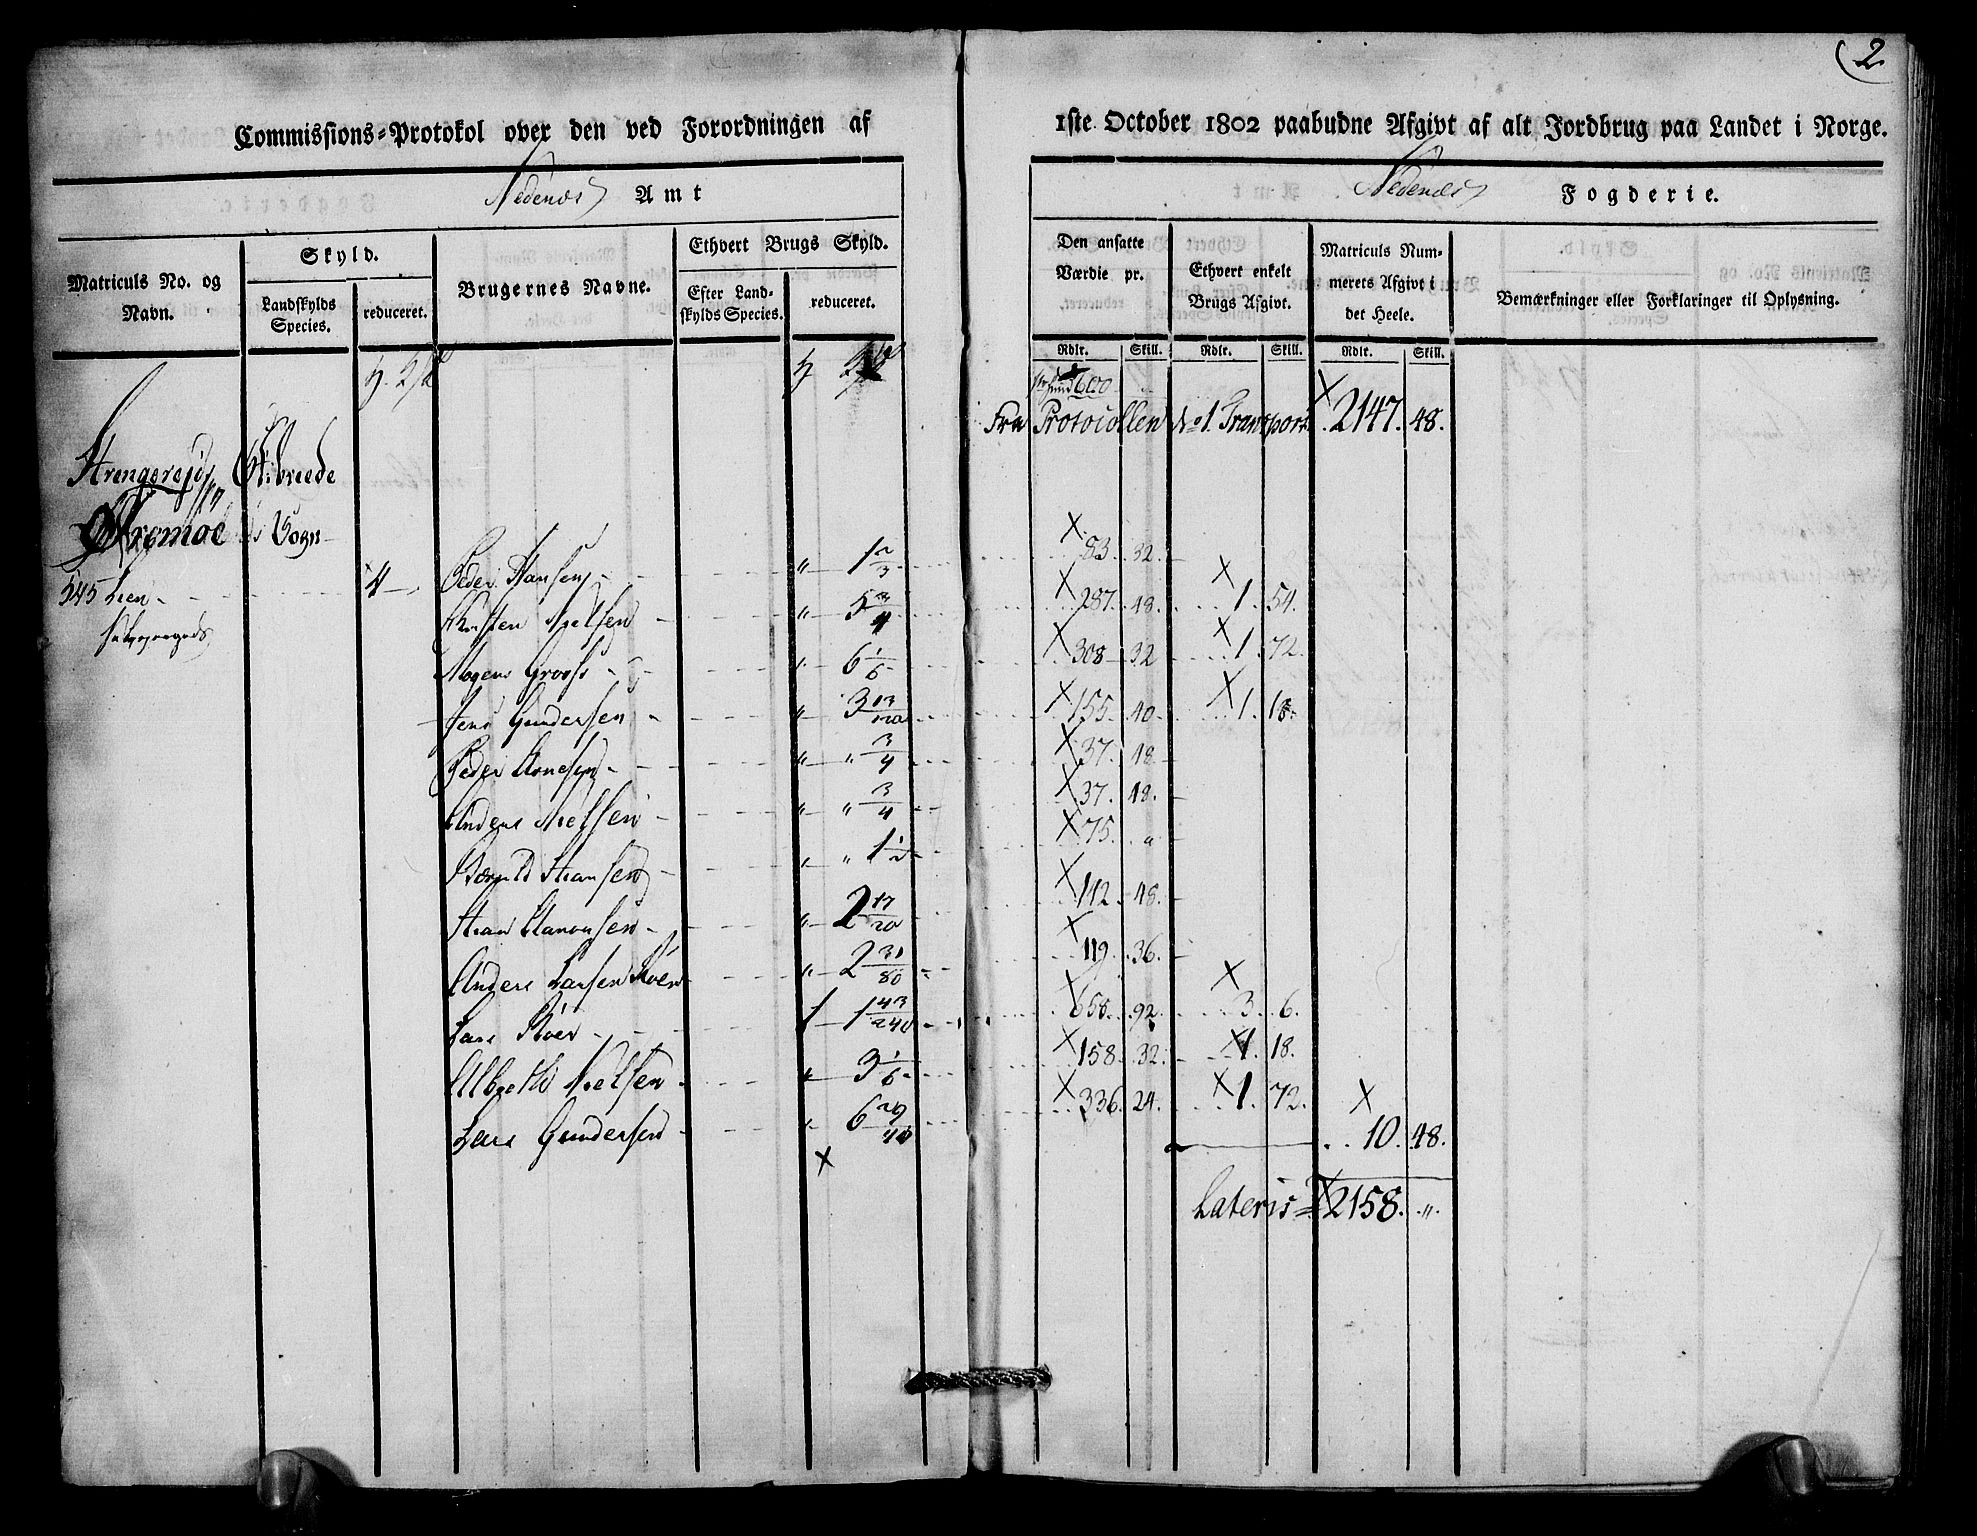 2.
Commissions-Protokol over den ved Forordningen af 1ste October 1802 paabudne Afgivt af alt Jordbrug paa Landet i Norge.
Nedenæs Amt
Nedenæs Fogderie.
Matriculs No. og Navn.
Skyld.
Landskylds Species.
reduceret.
Brugernes Navne.
Ethvert Brugs Skyld.
Efter Landskylds Species.
reduceret.
Den ansatte Værdie pr.
Ethvert enkelt Brugs Afgivt.
Matriculs Nummerets Afgivt i det Heele.
Bemærkninger eller Forklaringer til Oplysning.
Rdlr. Skill. Rdlr. Skill. Rdlr. Skill.
600
Fra Protocollen No 1. Transport 2147. 48.
Tibreede
Tromøe Sogn
545 Lien 4 Peder Hansen " 1 2/3 83. 32.
Nielsen " 5 3/4 287. 48. 1. 54.
Mogens " 6 1/6 308 32 1. 72.
Jens Gundersen " 3 13/120 155. 40 1. 18.
Peder " " 3/4 37. 48.
Anders Nielsen " " 3/4 37. 48.
Hansen " " 1 1/2 75. "
" 2 17/20 142. 48.
Anders Larsen " 2 31/80 119. 36.
Lars 1 1 43/240 658. 92. 3. 6.
Nielsen " 3 1/6 158. 32. 1. 18.
Lars Gundersen " 6 29/40 336. 24. 1. 72.
10. 48.
Lateris 2158. "